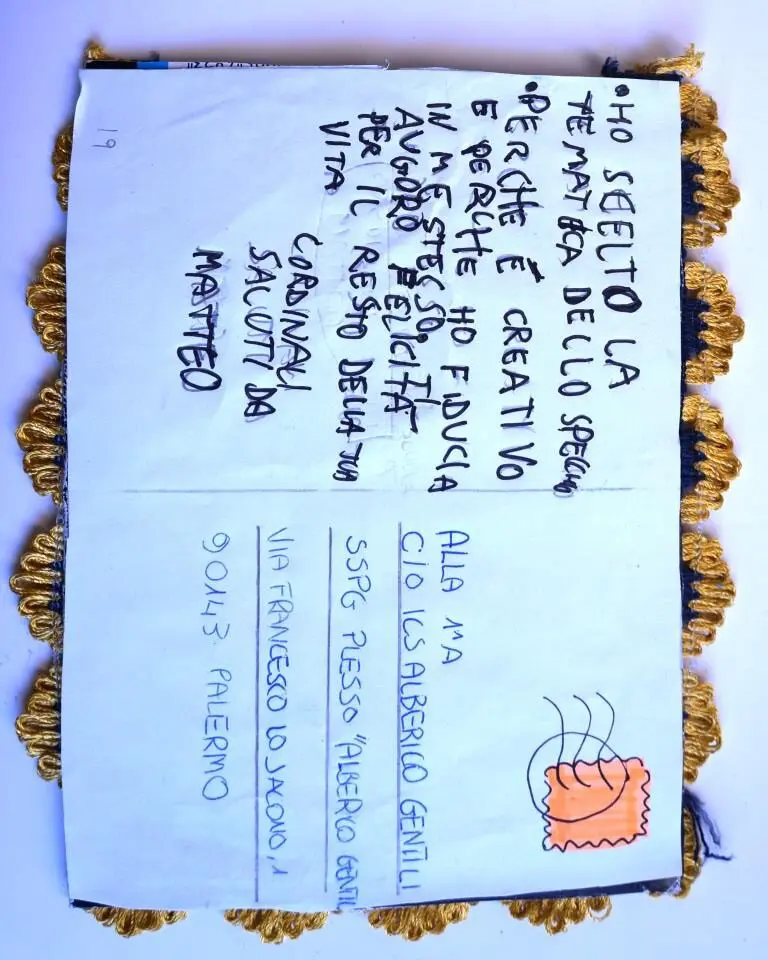 • HO SCELTO LA
TEMATICA DELLO SPECCHIO
• PERCHE È CREATIVO
E PERCHE HO FIDUCIA
IN ME STESSO. TI
AUGORO FELICITÀ
PER IL RESTO DELLA TUA
VITA
CORDINALI
SALUTI DA
MATTEO
19
ALLA 1ªA
C/O ICS ALBERICO GENTILI
SSPG PLESSO "ALBERICO GENTIL
VIA FRANCESCO LO JACONO, 1
90143 PALERMO